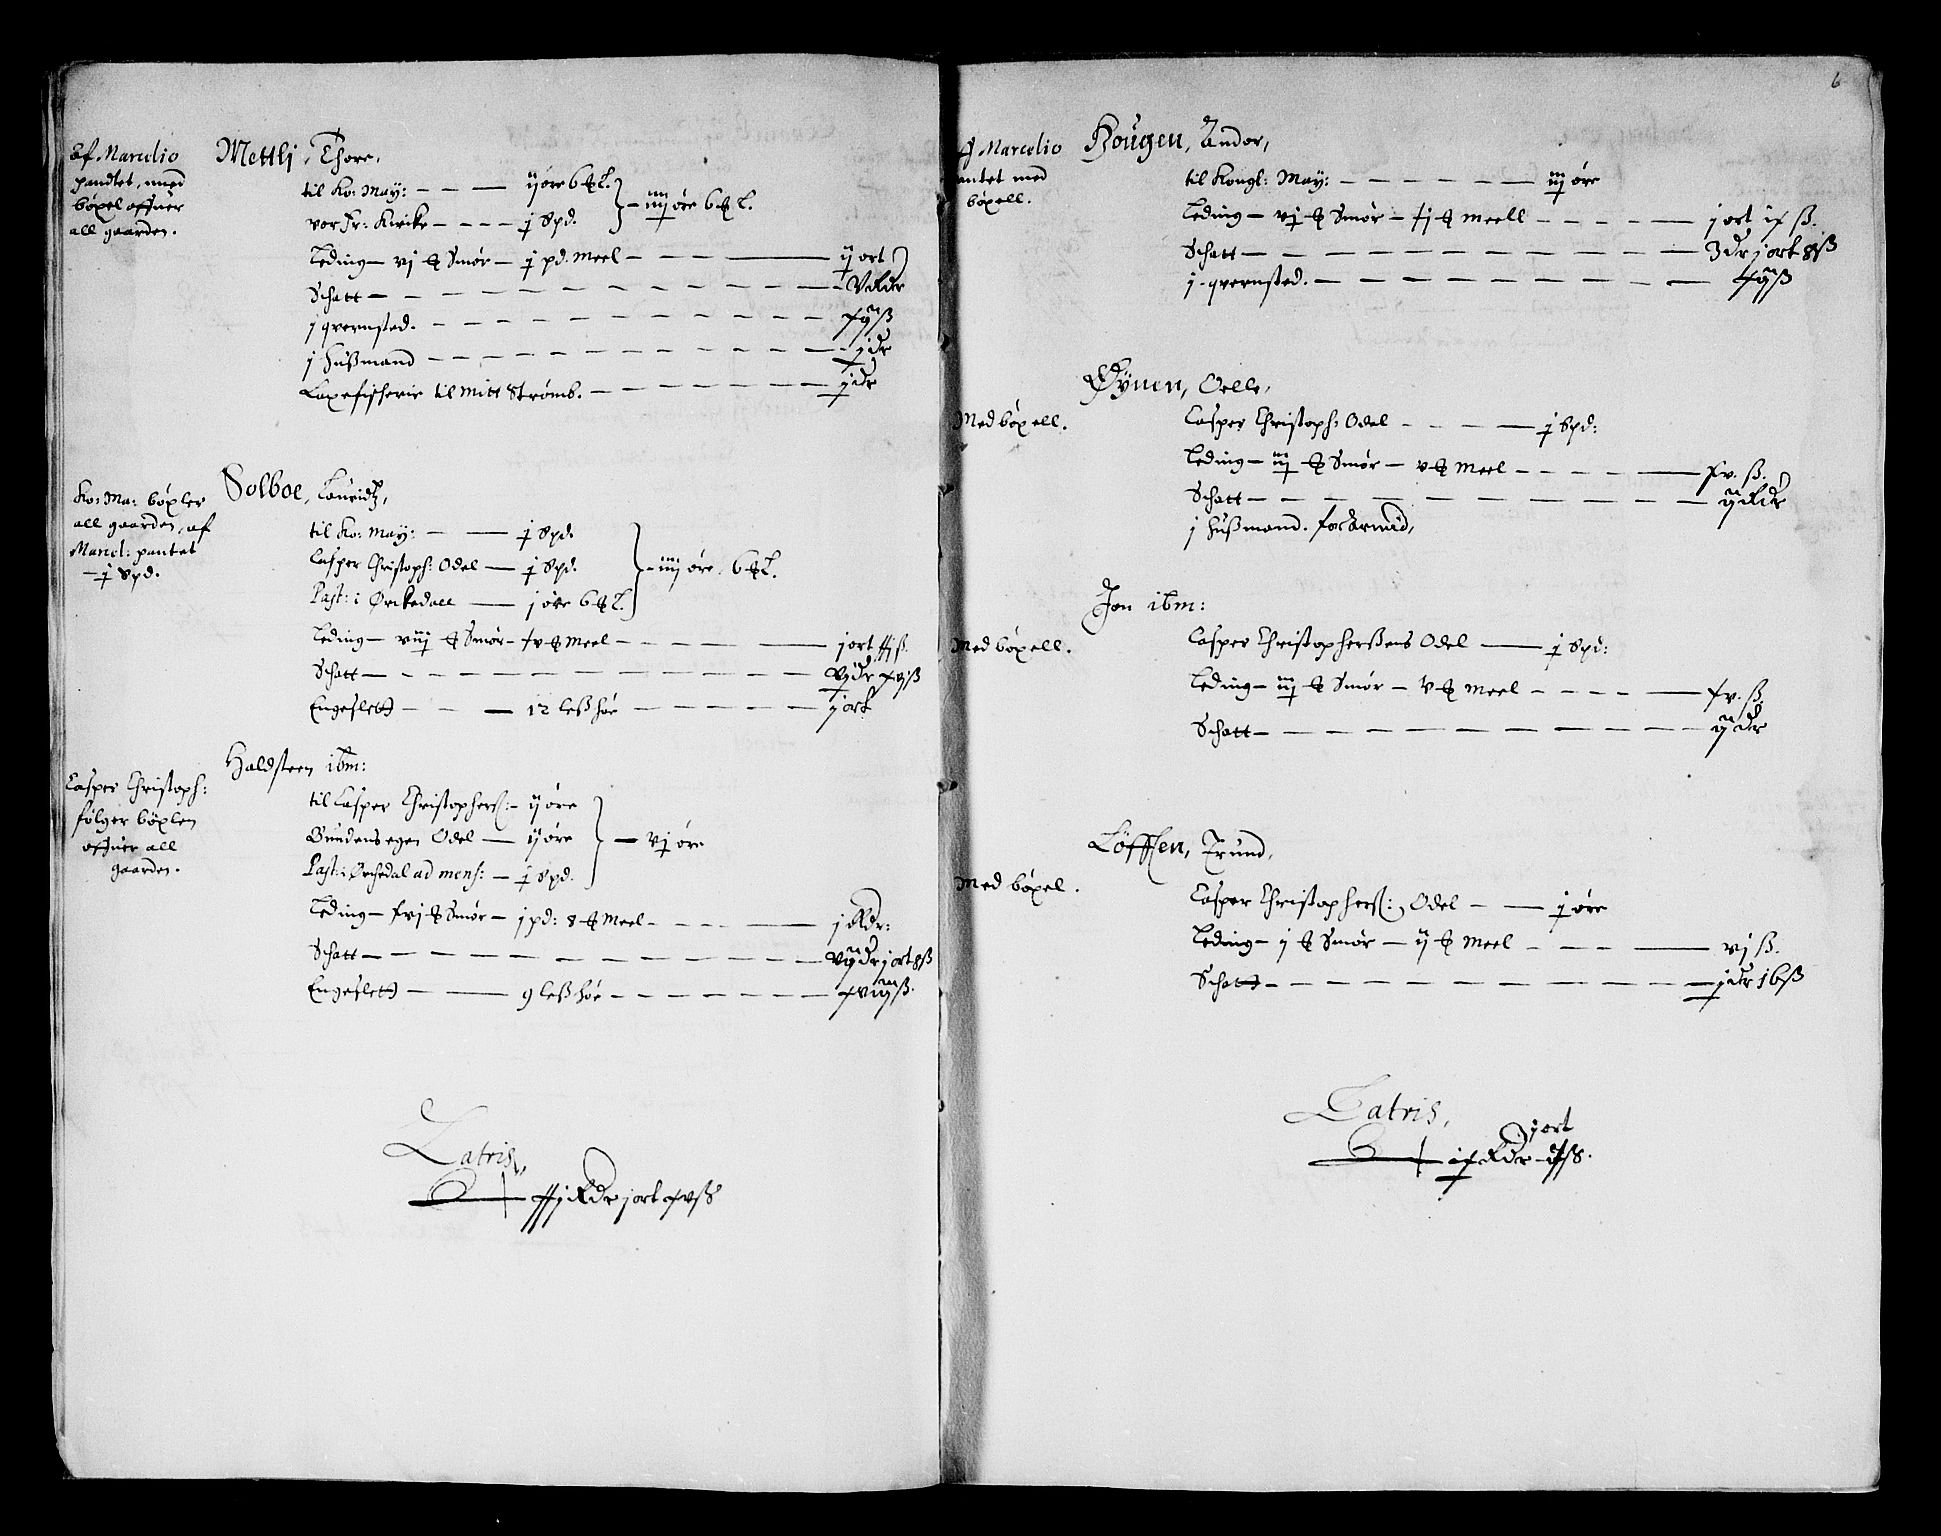 af Marcelio
pandtet, med
bøxel offuer
all gaarden.
Mettli, Thore,
til Ko: May: — ij øre 6 ℔ T.
vor Fr: Kircke — j Spd. — iiij øre 6 ℔ T.
Leding — vj ℔ Smør — j pd. Meel — ij ort
Schatt — V Rdr
j qvernsted. — xij ß
j Hußmand — j dr
Laxefischerie til mitt Strømb. — j dr
Ko: Ma: bøxler
all gaarden, af
Marcel: pantet
— j Spd.
Solboe, Lauridtz,
til Ko: May: — j Spd.
Casper Christoph: Odel — j Spd. — iiij øre. 6 ℔ T.
Past: i Ørckedall — j øre 6 ℔ T.
Leding — viij ℔ Smør — xv ℔ Meel — j ort xxj ß.
Schatt — Vj dr xvj ß
Engeslett — 12 leß høe — j ort
Casper Christoph:
følger bøxlen
offuer all
gaarden.
Haldsteen ibm:
til Casper Christophers: — ij øre
Bundens egen Odel — ij øre — vj øre
Past: i Ørchedal ad mens: — j Spd.
Leding — xvj ℔ Smør — j pd: 8 ℔ Meel — j Rdr:
Schatt — Vij dr j ort 8 ß
Engeslett — 9 leß høe — xviij ß.
Latris,
xxj Rdr j ort xv ß
6
af Marcelio
pantet med
bøxell.
Hougen, Andor,
til Kongl: May: — iij øre
Leding — vj ℔ Smør — xj ℔ Meell — j ort ix ß.
Schatt — 3 dr j ort 8 ß
j qvernsted. — xij ß
Med bøxell.
Øÿnen, Oelle,
Casper Christoph: Odel — j Spd:
Leding — iij ℔ Smør — v ℔ Meel — xv. ß.
Schatt — ij Rdr
j Hußmand. forarmid,
Med bøxell.
Jon ibm:
Casper Christopherßens Odel — j Spd:
Leding — iij ℔ Smør — V ℔ Meel — xv. ß.
Schatt — ij dr
Med bøxel.
Løffsen, Trund,
Casper Christophers: Odel — j øre
Leding — j ℔ Smør — ij ℔ Meel — vj ß.
Schatt — j dr 16 ß
Latris,
j ort
ix Rdr